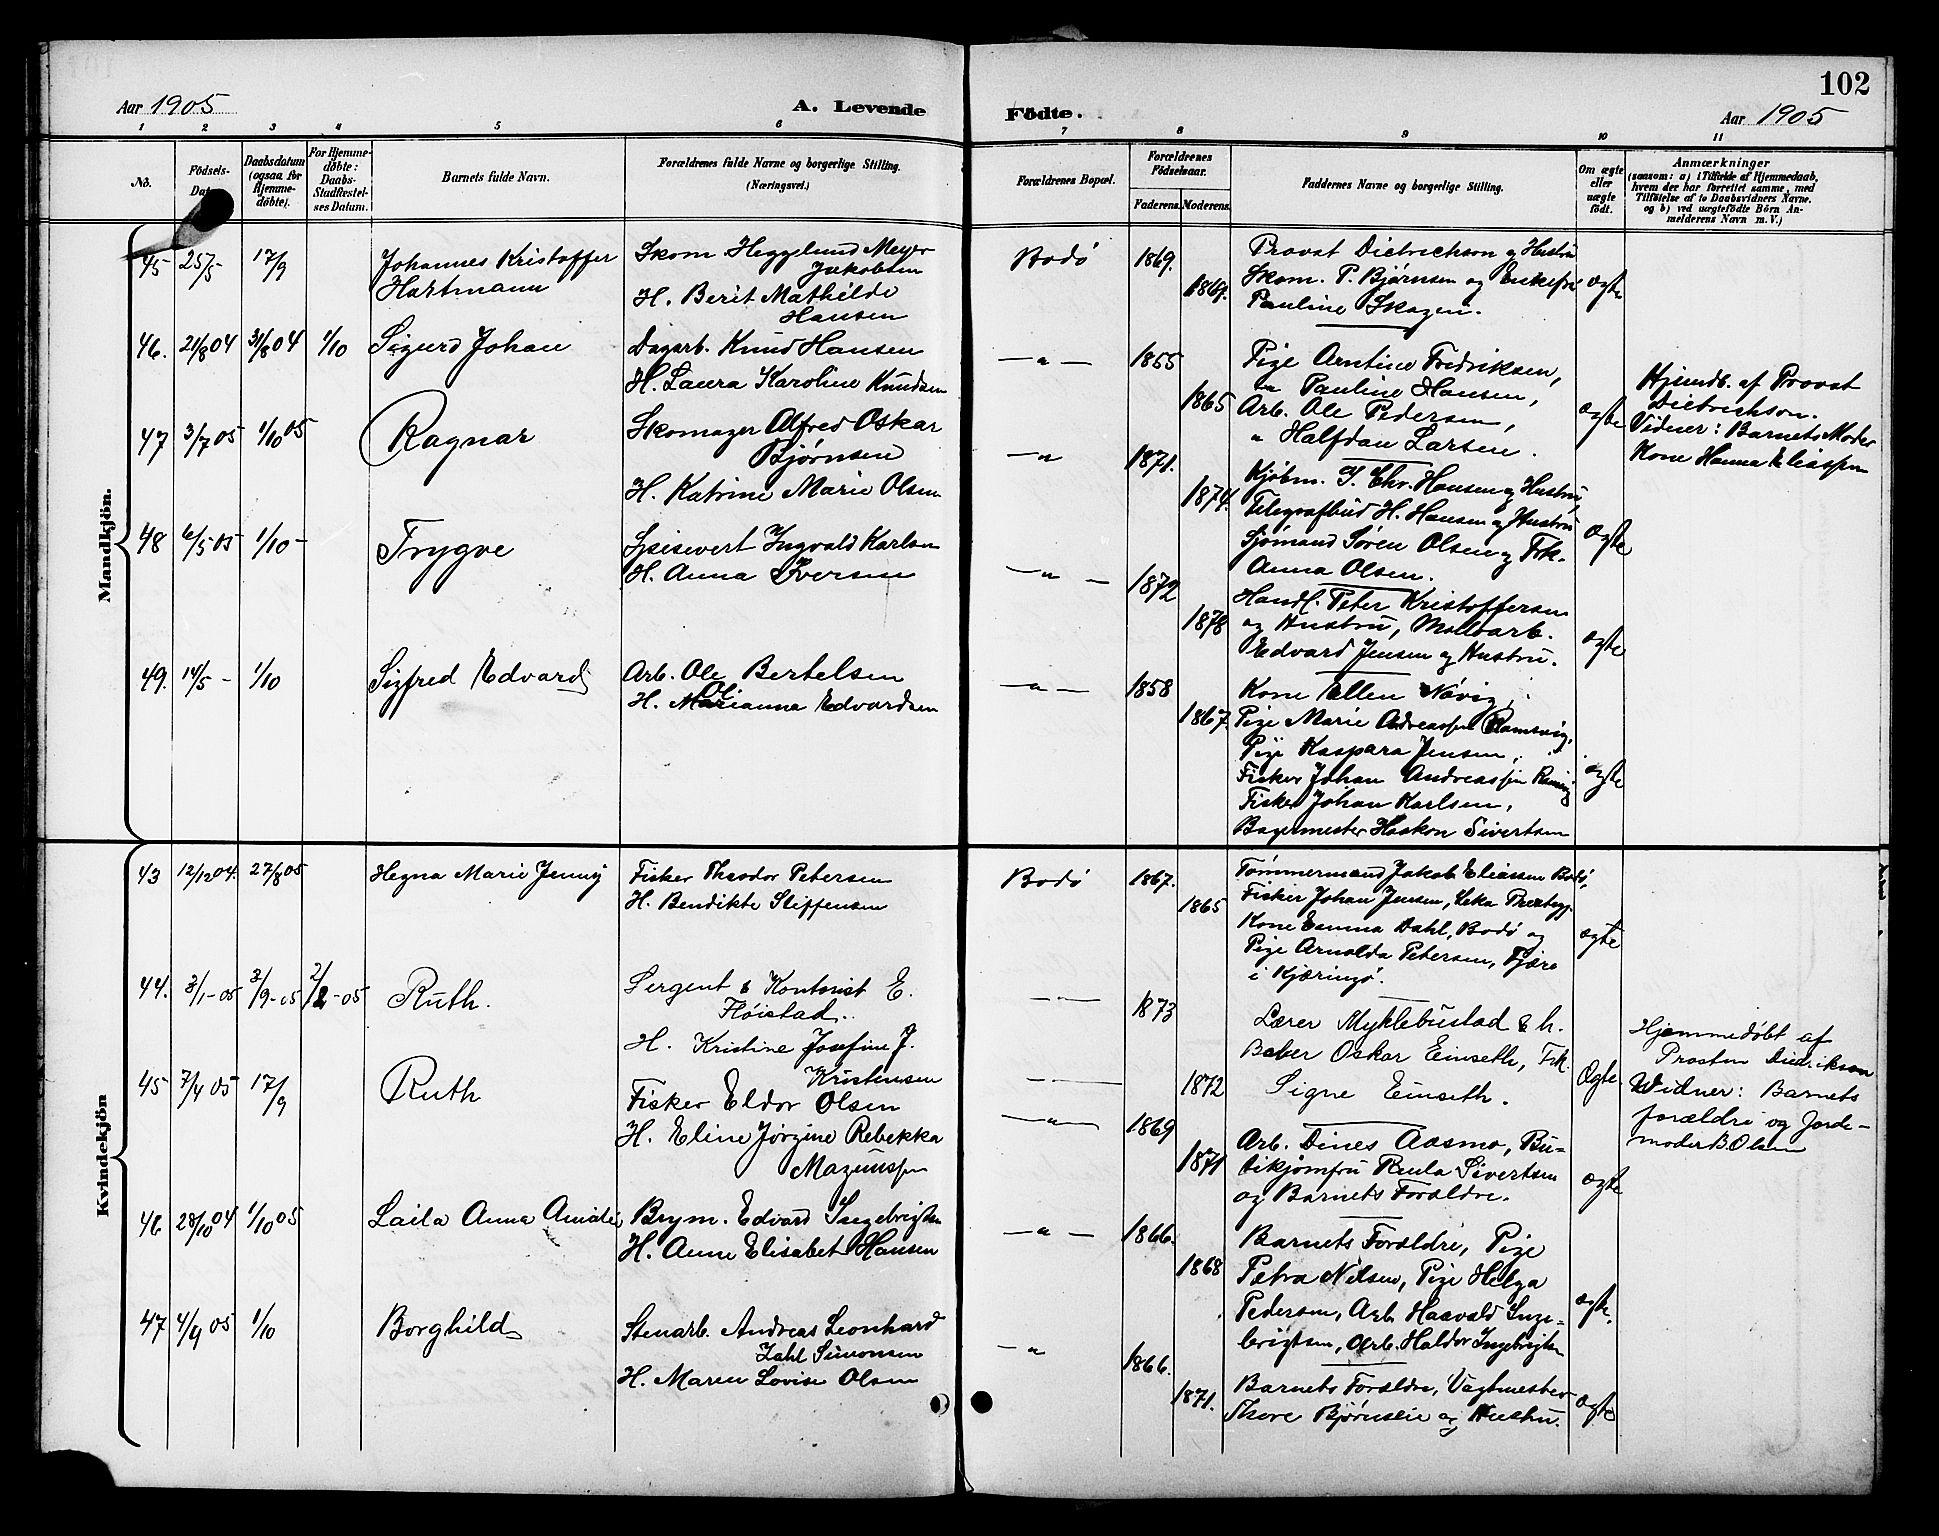 102
Aar 1905
A. Levende
Födte.
Aar 1905
1 2 3 4 5 6 7 8 9 10 11
No.
Födsels-
Daabsdatum
(ogsaa for
Hjemme-
döbte).
For Hjemme-
döbte:
Daabs-
Stadfæstel-
ses Datum.
Barnets fulde Navn.
Forældrenes fulde Navne og borgerlige Stilling.
(Næringsvei.)
Forældrenes Bopæl.
Forældrenes
Födselsaar.
Faderens.
Moderens.
Faddernes Navne og borgerlige Stilling.
Om ægte
eller
uægte
født.
Anmærkninger
(saasom: a) i Tilfælde af Hjemmedaab,
hvem der har forrettet samme, med
Tilföielse af to Daabsvidners Navne.
og b) ved uægtefödte Börn An-
melderens Navn m. V.)
Mandkjön.
45 25/5 17/9
Johannes Kristoffer
Hartmann
Skom. Hegglund Meyer
Jakobsen
H. Berit Mathilde
Hansen
Bodø 1869.
1869.
Provst Dietrichson og Hustru
Skom. P. Bjørnsen og Enkefru
Pauline Skagen.
ægte
46. 21/8 04 31/8 04 1/10
Sigurd Johan
Dagarb. Knud Hansen
H. Laura Karoline Knudsen
— " — 1855
1865
Pige Arntine Fredriksen,
" Pauline Hansen,
Arb. Ole Pedersen,
" Halfdan Larsen.
ægte
Hjemdb. af Provst
Dietrichson.
Vidner: Barnets Moder
Kone Hanna Eliassen
47 3/7 05 1/10 05
Ragnar
Skomager Alfred Oskar
Bjørnsen
H. Katrine Marie Olsen
— " 1871.
1874.
Kjøbm. J. Chr. Hansen og Hustru,
Telegrafbud H. Hansen og Hustru
Sjømand Søren Olsen og Frk.
Anna Olsen.
ægte
48 6/5 05 1/10 -
Trygve
Spisevert Ingvald Karlsen
H. Anna Iversen
— " — 1872
1878
Handl. Peter Kristoffersen
og Hustru, Malerarb.
Edvard Jensen og Hustru.
ægte
49. 14/5 - 1/10
Sigfred Edvard
Arb. Ole Bertelsen
H. Marianna Edvardsen
— " — 1858
1867.
Kone Ellen Növig,
Pige Marie Andreassen Ramsvig,
Pige Kaspara Jensen,
Fisker Johan Andreassen
Fisker Johan Karlsen,
Bagermester Haakon Sivertsen
ægte
Kvindekjön
43 12/12 04. 27/8 05
Hegna Marie Jenny
Fisker Theodor Petersen
H. Bendikte Steffensen
Bodø 1867.
1865
Tømmermand Jakob Eliassen Bodø,
Fisker Johan Jensen, Leka
Kone Emma Dahl, Bodø og
Pige Arnolda Petersen, Fjære
i Kjæringø.
ægte
44. 3/1-05 3/9-05 2/2-05
Ruth.
Sergent & Kontorist E.
Fløistad.
H. Kristine Josefine J.
Kristensen
1873
1872
Lærer Myklebustad & h.
Baber Oskar Einseth, Frk.
Signe Einseth.
Ægte
Hjemmedøbt af
Prosten Didrikson
Vidner: Barnets
forældre og Jorde-
moder B. Olsen
45 7/4 05 17/9
Ruth
Fisker Eldor Olsen
H. Eline Jørgine Rebekka
Magnussen
— " — 1869
1871
Arb. Dines Aasmo, Bu-
tikjomfru Paula Sivertsen
og Barnets Forældre.
ægte
46 28/10 04 1/10 05
Laila Anna Amalie
Brym. Edvard Ingebrigtsen
H. Anne Elisabet Hansen
— " — 1866.
1868
Barnets Forældre, Pige
Petra Nilsen, Pige Helga
Pedersen, Arb. Haavald Inge-
brigtsen, Arb. Haldor Ingebrigtsen
ægte.
47 4/9 05 1/10
Borghild
Stenarb. Andreas Leonhard
Zahl Simonsen
H. Maren Lovise Olsen
— " 1866.
1871.
Barnets Forældre, Vagtmester
Thore Bjørnseie og Hustru.
ægte